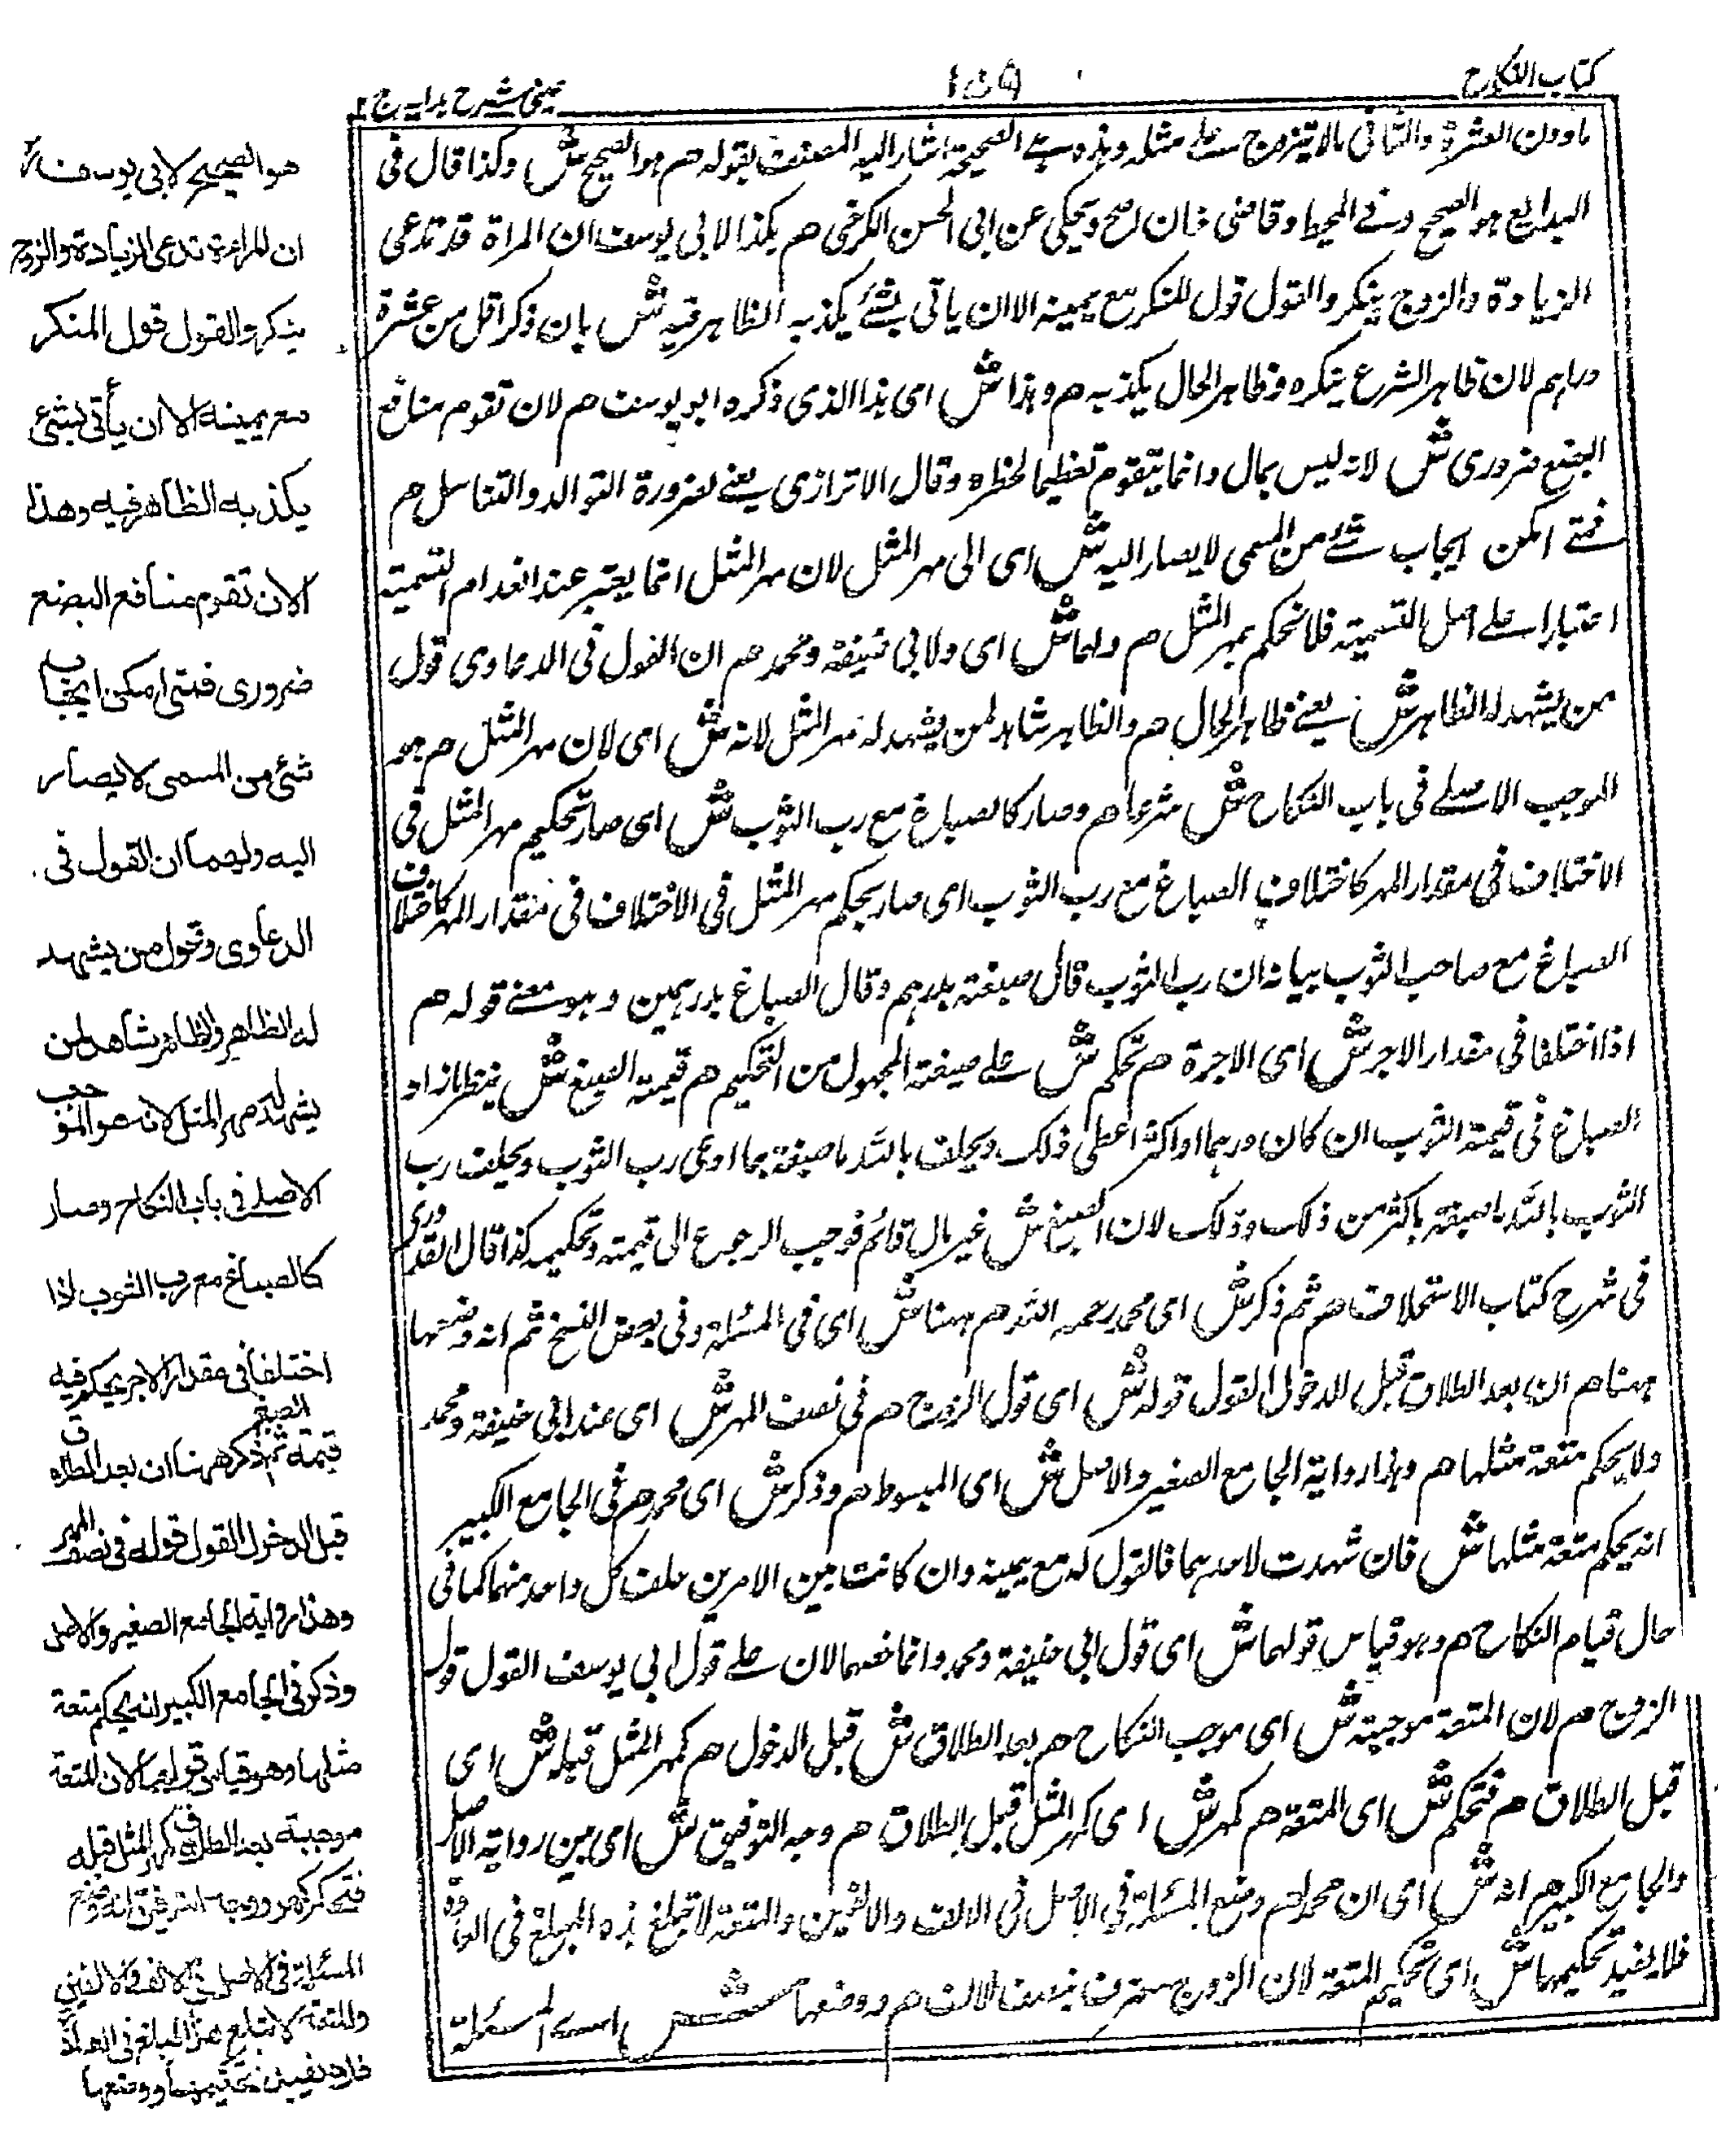 كتاب النكاح
١٥٩
عينى شرح هدايه ج ٢
مادون العشرة والثانى مالا يتزوج على مثله وهذه هى الصحيحة اشار اليه المصنف بقوله هم هو الصحيح ش وكذا قال فى
البدايع هو الصحيح وفى المحيط وقاضى خان اصح ويحكى عن ابى الحسن الكرخى هم هكذا لابى يوسف ان المراة قد تدعى
الزيادة والزوج ينكر والقول قول المنكر مع يمينه الا ان ياتى بشئ يكذبه الظاهر فيه ش بان ذكر اقل من عشرة
دراهم لان ظاهر الشرع ينكره وظاهر الحال يكذبه هم وهذا ش اى هذا الذى ذكره ابو يوسف هم لان تقوم منافع
البضع ضرورى ش لانه ليس بمال وانما يتقوم تعظيما لخطره وقال الاترازى يعنى لضرورة التوالد والتناسل هم
فمتى امكن ايجاب شئ من المسمى لا يصار اليه ش اى الى مهر المثل لان مهر المثل انما يعتبر عند انعدام التسمية
اعتبارا على اصل التسمية فلا نحكم بمهر المثل هم ولهما ش اى ولابى حنيفة ومحمد هم ان القول فى الدعاوى قول
من يشهد له الظاهر ش يعنى ظاهر الحال هم والظاهر شاهد لمن يشهد له مهر المثل لانه ش اى لان مهر المثل هم هو
الموجب الاصلى فى باب النكاح ش شرعا هم وصار كالصباغ مع رب الثوب ش اى صار تحكيم مهر المثل فى
الاختلاف فى مقدار المهر كاختلاف الصباغ مع رب الثوب اى صار يحكم مهر المثل فى الاختلاف فى مقدار المهر كاختلاف
الصباغ مع صاحب الثوب بيانه ان رب الثوب قال صبغته بدرهم وقال الصباغ بدرهمين وهو معنى قوله هم
اذا اختلفا فى مقدار الاجر ش اى الاجرة هم تحكم ش على صيغة المجهول من التحكيم هم قيمة الصبغ ش ينظر مازاد
الصباغ فى قيمة الثوب ان كان درهما او اكثر اعطى ذلك ويحلف بالله ما صبغه بما ادعى رب الثوب ويحلف رب
الثوب بالله ما صبغته باكثر من ذلك وذلك لان الصبغ ش غير مال قائم فوجب الرجوع الى قيمته وتحكيمه كذا قال القدورى
فى شرح كتاب الاستحلاف هم ثم ذكر ش اى محمد رحمه الله هم ههنا ش اى فى المسئلة وفى بعض النسخ ثم انه وضعها
ههنا هم ان بعد الطلاق قبل الدخول القول قوله ش اى قول الزوج هم فى نصف المهر ش اى عند ابى حنيفة ومحمد
ولا يحكم متعة مثلها هم وهذا رواية الجامع الصغير والاصل ش اى المبسوط هم وذكر ش اى محمد هم فى الجامع الكبير
انه يحكم متعة مثلها ش فان شهدت لاحدهما فالقول له مع يمينه وان كانت بين الامرين حلف كل واحد منهما كما فى
حال قيام النكاح هم وهو قياس قولهما ش اى قول ابى حنيفة ومحمد وانما خصهما لان على قول ابى يوسف القول قول
الزوج هم لان المتعة موجبة ش اى موجب النكاح هم بعد الطلاق ش قبل الدخول هم كمهر المثل قبله ش اى
قبل الطلاق هم فتحكم ش اى المتعة هم كمهر ش اى كمهر المثل قبل الطلاق هم وجه التوفيق ش اى بين رواية الاصل
والجامع الكبير هم انه ش اى ان محمدا هم وضع المسئلة فى الاصل فى الالف والالفين والمتعة لا تبلغ هذا المبلغ فى العادة
فلا يفيد تحكيمها ش اى تحكيم المتعة لان الزوج معترف بنصف الالف هم ووضعها ش اى المسئلة
هو الصحيح لابى يوسف رح
ان المراءة تدعى الزيادة والزوج
ينكر والقول قول المنكر
مع يمينه الا ان يأتى بشئ
يكذبه الظاهر فيه وهذا
لان تقوم منافع البضع
ضرورى فمتى امكن ايجاب
شئ من المسمى لا يصار
اليه ولهما ان القول فى
الدعاوى قول من يشهد
له الظاهر والظاهر شاهد لمن
يشهد له مهر المثل لانه هو الموجب
الاصلى فى باب النكاح وصار
كالصباغ مع رب الثوب اذا
اختلفا فى مقدار الاجر يحكم فيه
قيمة الصبغ ثم ذكر ههنا ان بعد الطلاق
قبل الدخول القول قوله فى نصف المهر
وهذا رواية الجامع الصغير والاصل
وذكر فى الجامع الكبير انه يحكم متعة
مثلها وهو قياس قولهما لان المتعة
موجبة بعد الطلاق كمهر المثل قبله
فتحكم كهو ووجه التوفيق انه وضع
المسئلة فى الاصل فى الالف والالفين
والمتعة لا تبلغ هذا المبلغ فى العادة
فلا يفيد تحكيمها ووضعها